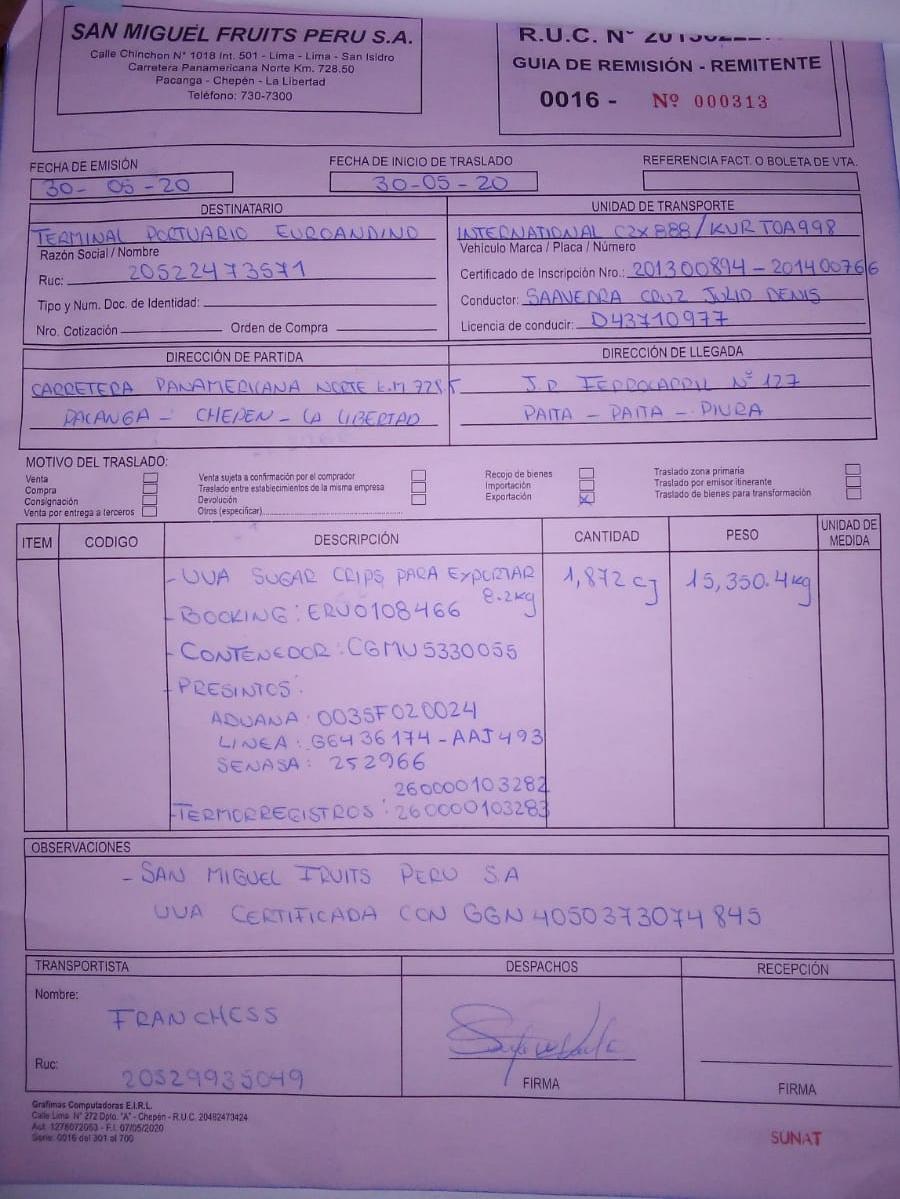 SAN MIGUEL FRUITS PERU S.A.
Calle Chinchon N° 1018 Int. 501 - Lima - Lima - San Isidro
Carretera Panamericana Norte Km. 728.50
Pacanga - Chepén - La Libertad
Teléfono: 730-7300
R.U.C. N°
GUIA DE REMISIÓN - REMITENTE
0016 - Nº 000313
FECHA DE EMISIÓN
30-05-20
FECHA DE INICIO DE TRASLADO
30-05-20
REFERENCIA FACT. O BOLETA DE VTA.
DESTINATARIO
TERMINAL PORTUARIO EUROANDINO
Razón Social / Nombre
Ruc: 20522473571
Tipo y Num. Doc. de Identidad:
Nro. Cotización Orden de Compra
UNIDAD DE TRANSPORTE
INTERNATIONAL C2X888/KURTOA998
Vehículo Marca / Placa / Número
Certificado de Inscripción Nro.: 201300894-201400766
Conductor: SAAVEDRA CRUZ JULIO DENIS
Licencia de conducir: D43710977
DIRECCIÓN DE PARTIDA
CARRETERA PANAMERICANA NORTE K.M 728.5
PACANGA - CHEPEN - LA LIBERTAD
DIRECCIÓN DE LLEGADA
J.R FERROCARRIL Nº 127
PAITA - PAITA - PIURA
MOTIVO DEL TRASLADO:
Venta
Compra
Consignación
Venta por entrega a terceros
Venta sujeta a confirmación por el comprador
Traslado entre establecimientos de la misma empresa
Devolución
Otros (especificar)
Recojo de bienes
Importación
Exportación X
Traslado zona primaria
Traslado por emisor itinerante
Traslado de bienes para transformación
ITEM CODIGO DESCRIPCIÓN CANTIDAD PESO UNIDAD DE MEDIDA
- UVA SUGAR CRIPS PARA EXPORTAR 1,872 cj 15,350.4kg
8.2kg
- BOOKING: ERU0108466
- CONTENEDOR: CGMU5330055
- PRESINTOS:
ADUANA: 0035F020024
LINEA: G6436174-AAJ493
SENASA: 252966
260000103282
- TERMORREGISTROS: 260000103283
OBSERVACIONES
- SAN MIGUEL FRUITS PERU S.A
UVA CERTIFICADA CON GGN 4050373074845
TRANSPORTISTA
Nombre:
FRANCHESS
Ruc:
20529935049
DESPACHOS
FIRMA
RECEPCIÓN
FIRMA
Grafimas Computadoras E.I.R.L.
Calle Lima N° 272 Dpto. "A" - Chepén - R.U.C. 20482473424
Aut. 1276072063 - F.I. 07/05/2020
Serie: 0016 del 301 al 700
SUNAT